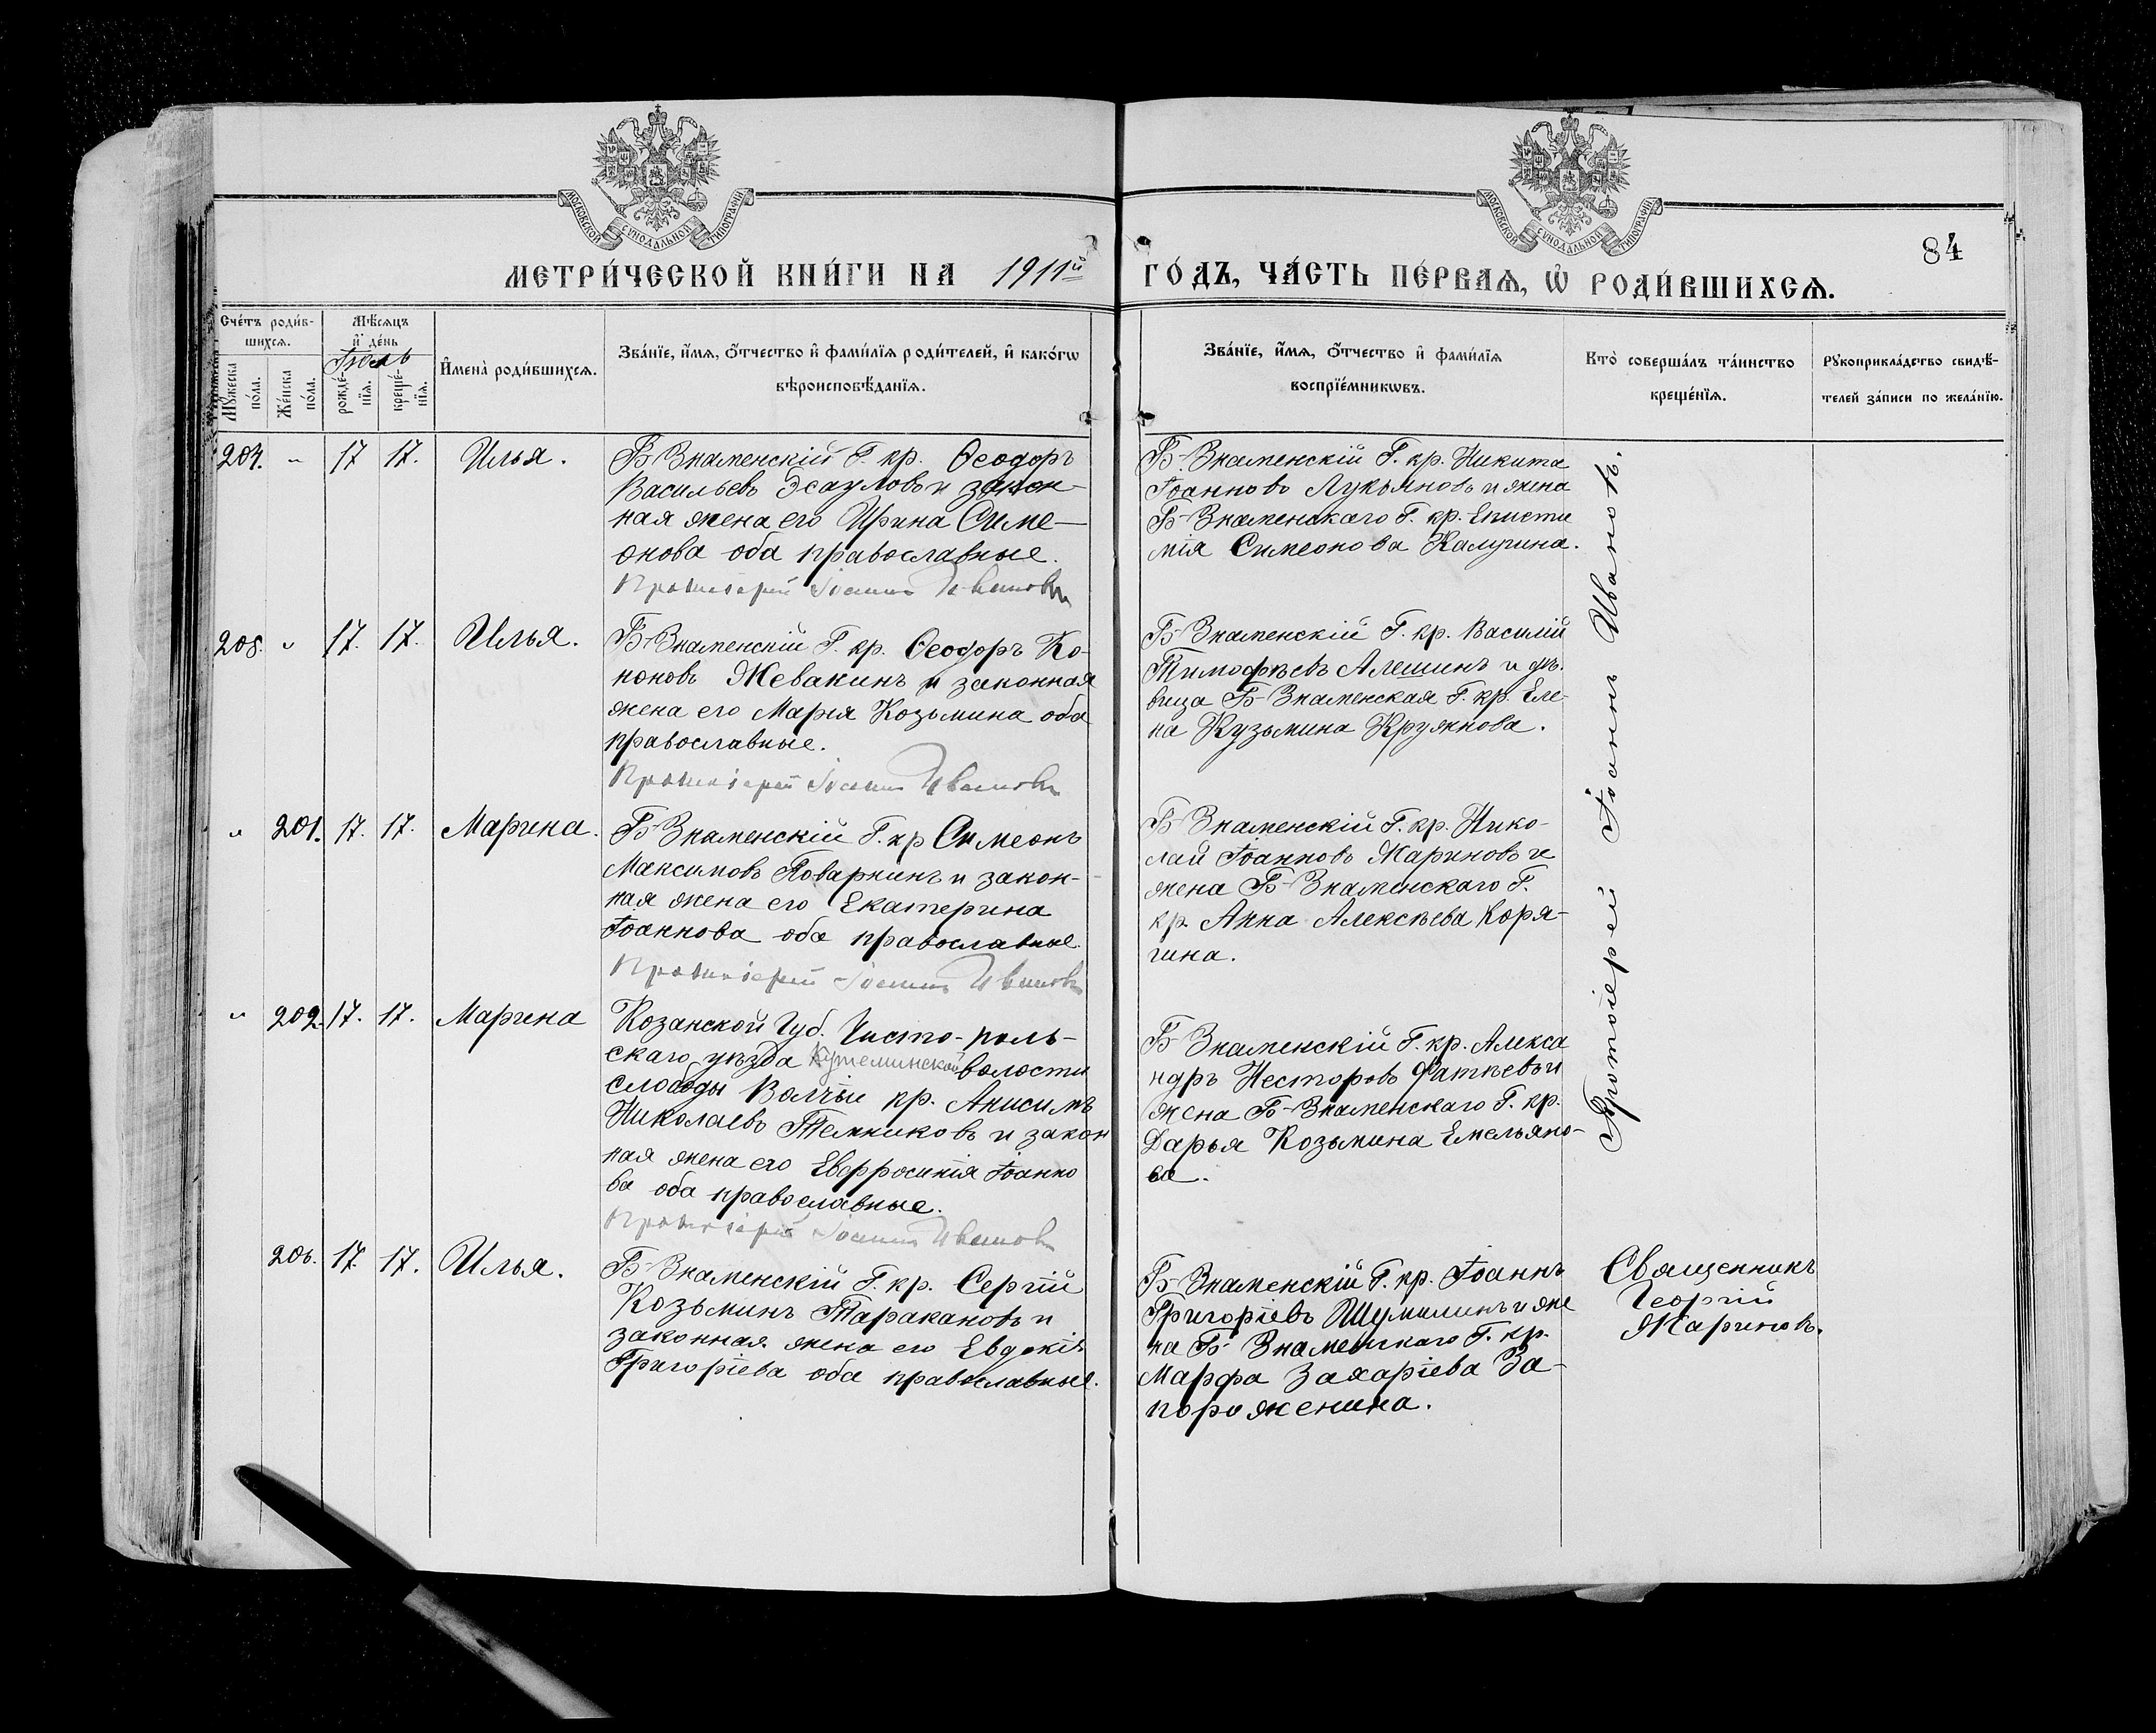 МОСКОВСКОЙ СУНОДАЛЬНОЙ ТИПОГРАФІИ
МОСКОВСКОЙ СУНОДАЛЬНОЙ ТИПОГРАФІИ
84
МЕТРИ́ЧЕСКОЙ КНИ́ГИ НА 1911й
ГО́ДЪ, ЧА́СТЬ ПЕ́РВАѦ, Ѡ҆ РОДИ́ВШИХСѦ.
Сче́тъ роди́в-
шихсѧ.
Мꙋ́жеска по́ла.
Же́нска по́ла.
Мѣ́сѧцъ
и҆ де́нь
Іюль
рожде́-
нїѧ.
креще́-
нїѧ.
И҆мена̀ роди́вшихсѧ.
Зва́нїе, и҆́мѧ, ѻ҆́тчество и҆ фами́лїѧ роди́телей, и҆ како́гѡ
вѣроисповѣ́данїѧ.
Зва́нїе, и҆́мѧ, ѻ҆́тчество и҆ фами́лїѧ
воспрїе́мникѡвъ.
Кто̀ соверша́лъ та́инство
креще́нїѧ.
Рꙋкоприкла́дство свидѣ́-
телей за́писи по жела́нїю.
204. " 17 17. Илья.
Б-Знаменскій Г. кр. Ѳеодоръ
Васильевъ Эсауловъ и закон-
ная жена его Ирина Симе-
онова оба православные.
Протоіерей Іоаннъ Ивановъ
Б-Знаменскій Г. кр. Никита
Іоанновъ Лукьяновъ и жена
Б-Знаменскаго Г. кр. Еписти
мія Симеонова Калугина.
205. " 17. 17. Илья.
Б-Знаменскій Г. кр. Ѳеодоръ Ко-
ноновъ Жевакинъ и законная
жена его Марія Козьмина оба
православные.
Протоіерей Іоаннъ Ивановъ
Б-Знаменскій Г. кр. Василій
Тимофѣевъ Алешинъ и дѣ-
вица Б-Знаменская Г. кр. Еле-
на Кузьмина Кружкова.
" 201. 17. 17. Марина.
Б-Знаменскій Г. кр Симеонъ
Максимовъ Поваркинъ и закон-
ная жена его Екатерина
Іоаннова оба православные.
Протоіерей Іоаннъ Ивановъ
Б-Знаменскій Г. кр. Нико-
лай Іоанновъ Жариновъ и
жена Б-Знаменскаго Г.
кр. Анна Алексѣева Коря-
гина.
" 202. 17. 17. Марина
Козанской Губ. Чисто-поль-
скаго уѣзда Кутеминской волости
слободы Волчьи кр. Анисимъ
Николаевъ Темниковъ и закон
ная жена его Евфросинія Іоанно
ва оба православные.
Протоіерей Іоаннъ Ивановъ
Б-Знаменскій Г. кр. Алекса
ндръ Несторовъ Фатѣевъ и
жена Б-Знаменскаго Г. кр.
Дарья Козьмина Емельяно-
ва.
Протоіерей Іоаннъ Ивановъ.
206. 17. 17. Илья.
Б-Знаменскій Г. кр. Сергій
Козьминъ Таракановъ и
законная жена его Евдокія
Григоріева оба православные.
Б-Знаменскій Г. кр. Іоаннъ
Григоріевъ Шумилинъ и же
на Б-Знаменскаго Г. кр.
Марфа Захаріева За-
пороженина.
Священникъ
Георгій
Жариновъ.